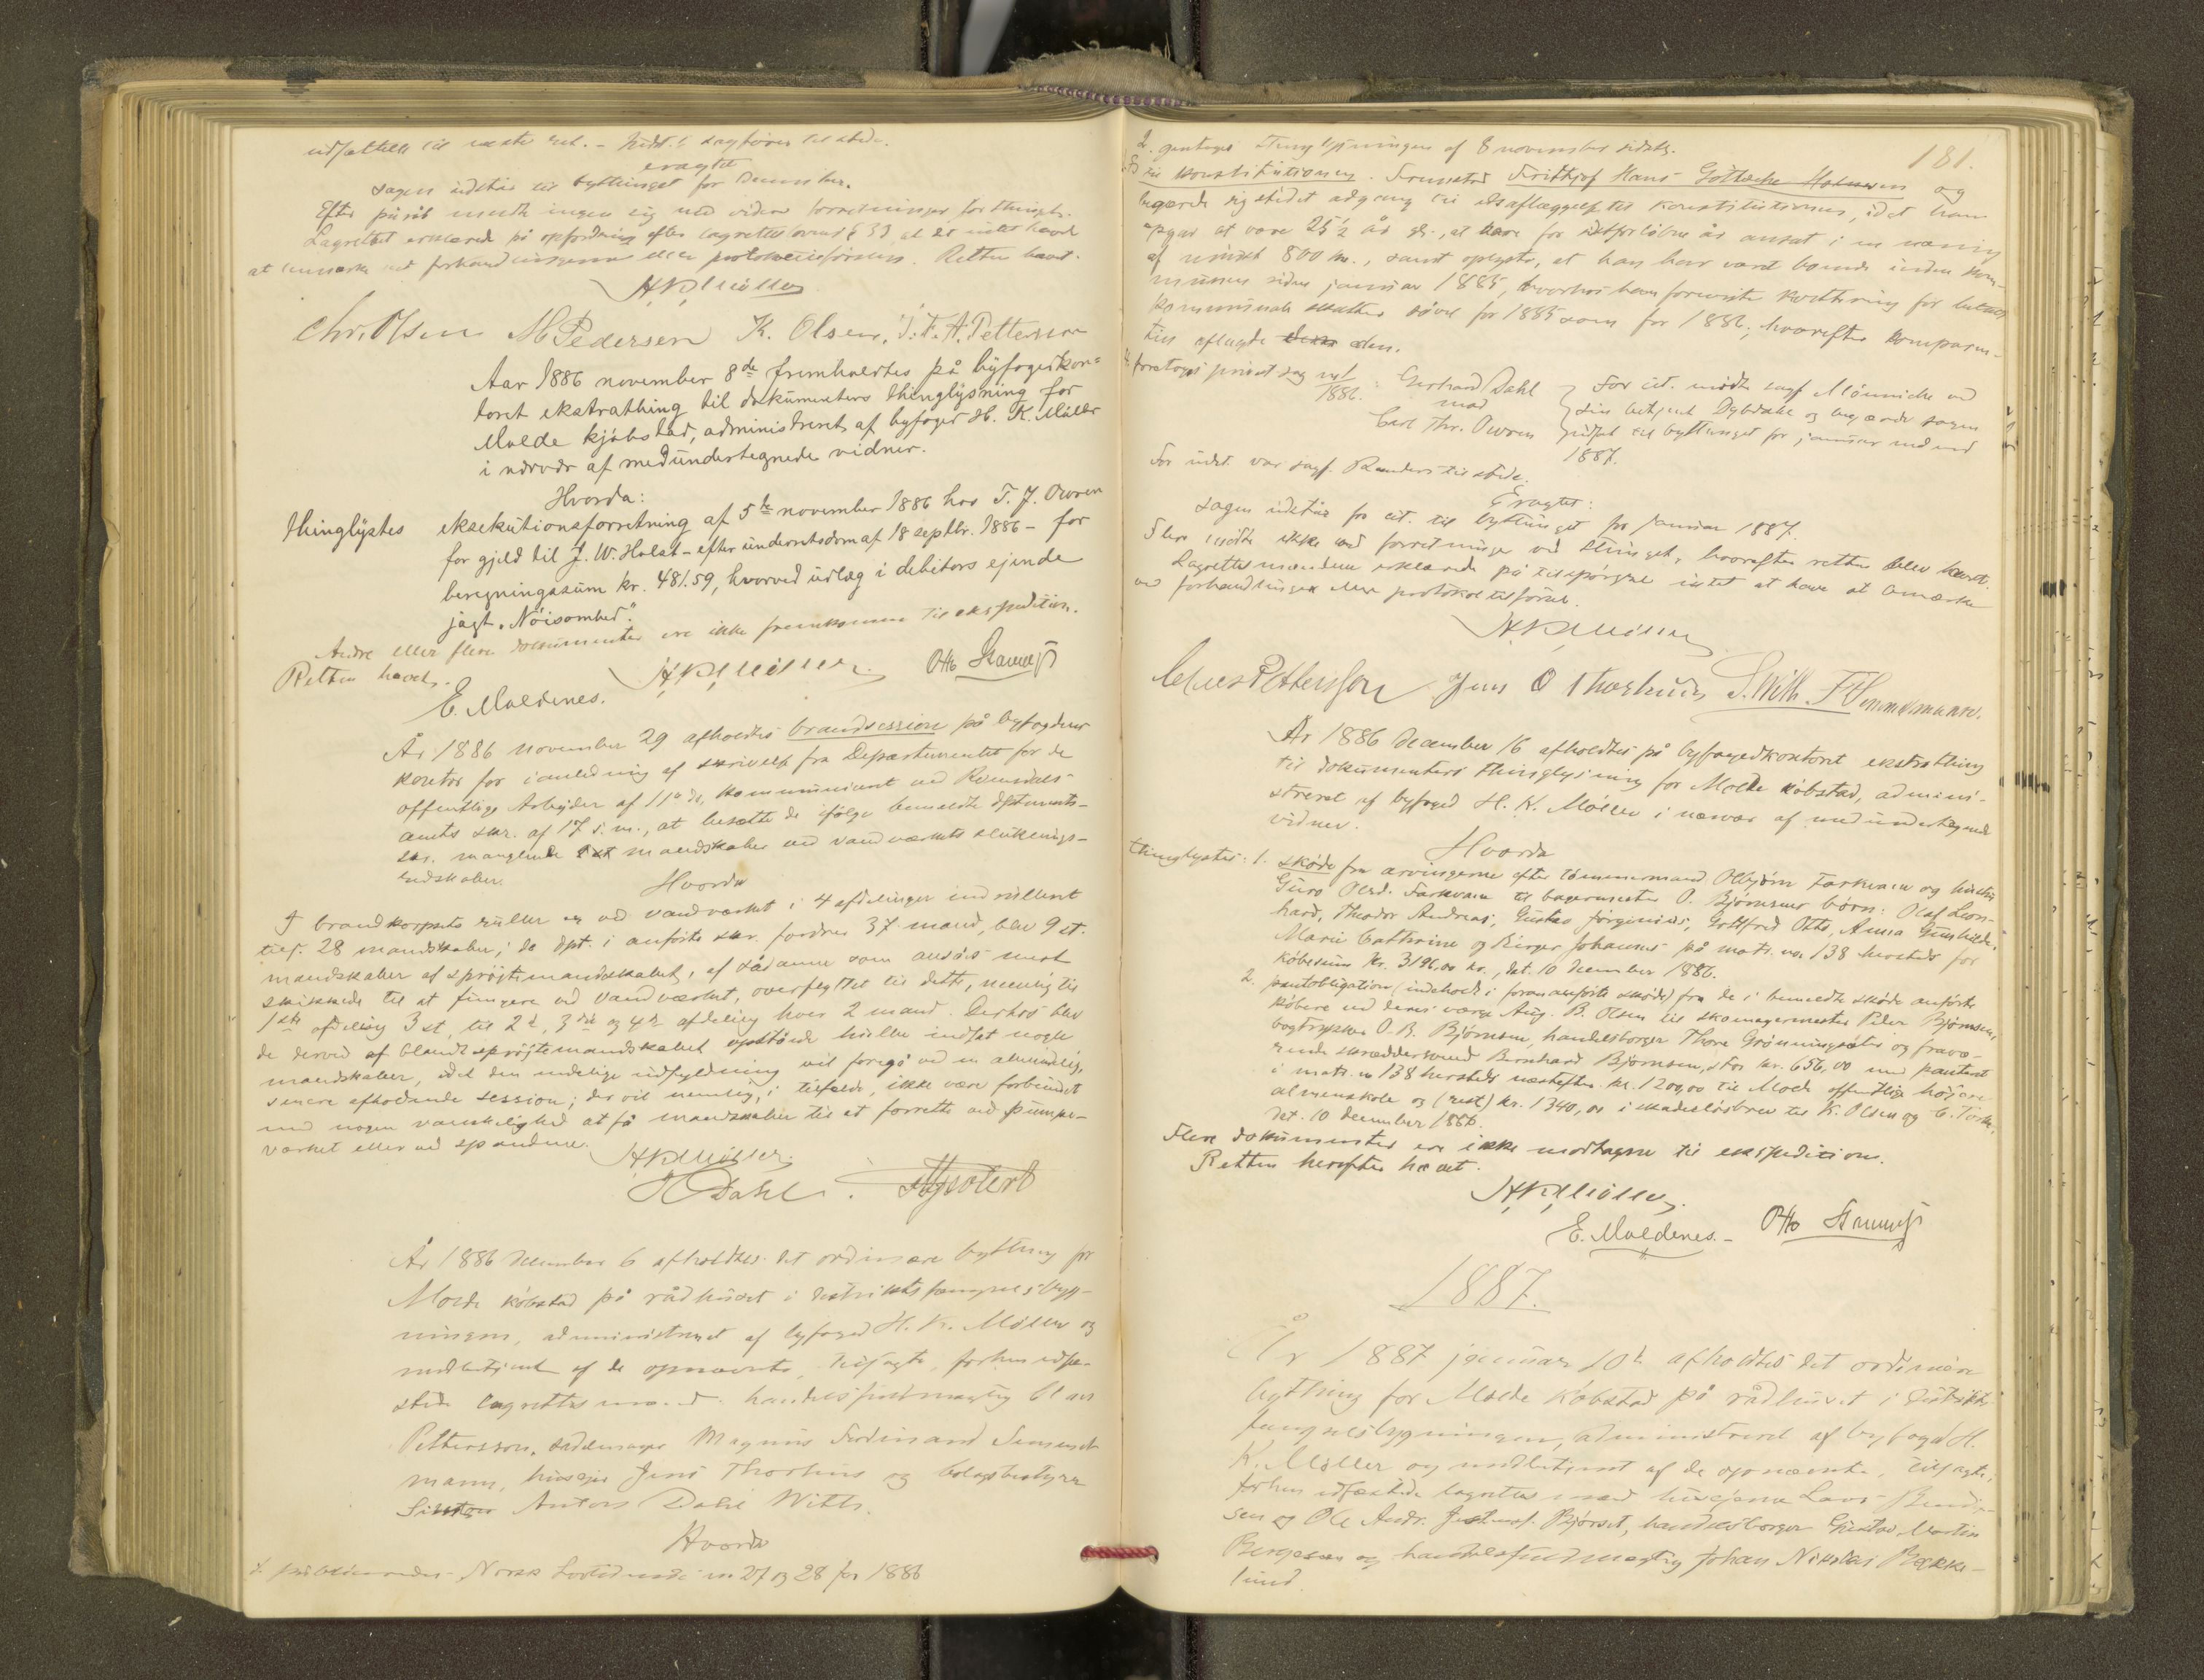 udsættelse til næste ret. - Indst. s sagfører til stede.
eragtet
Sagen udstår til bythinget for December.
Efter påråb meldte ingen sig med videre forretninger for thinget.
Lagrettet erklærede på opfordring efter lagretteslovens § 33, at de intet havde
at bemærke ved forhandlingerne eller protokoltilførslen. Retten hævet.
H.K. Møller
Chr. Olsen M Pedersen K. Olsen, J. F. A. Petterson
Aar 1886 november 8de fremholdtes på byfogedkon=
toret ekstrathing til dokumenters thinglysning for
Molde kjöbstad, administreret af byfoged H. K. Möller
i nærvær af medundertegnede vidner.
Hvorda:
thinglystes eksekutionsforretning af 5te november 1886 hos T. J. Owren
for gjeld til J. W. Holst - efter underretsdom af 18 septbr. 1886 - for
beregningssum kr. 481.59, hvorved udlæg i debitors ejende
jagt "Nöisomhed".
Andre eller flere dokumenter ere ikke fremkomne til ekspedition.
Retten hævet.
H.K. Møller. Otto
E. Moldenes.
År 1886 november 29 afholdtes brandsession på byfogdens
kontor for i anledning af skrivelse fra Departementet for de
offentlige Arbejder af 11te ds, kommuniceret ved Romsdals
amts skr. af 17 s. m., at besætte de ifølge bemeldte dptments-
skr. manglende mandskaber ved vandværkets sluknings-
redskaber.
Hvorda
I brandkorpsets ruller er ved vandværket i 4 afdelinger indrulleret
tils. 28 mandskaber; da dpt. i anførte skr. fordrer 37 mand, blev 9 st.
mandskaber af sprøjtemandskabet, af sådanne som ansåes mest
skikkede til at fungere ved vandværket, overflyttet til dette, nemlig til
1ste afdeling 3 st, til 2d, 3die og 4de afdeling hver 2 mand. Derhos blev
de derved af blandt sprøjtemandskabet opståede huller indsat nogle
mandskaber, idet den endelige udfyldning vil foregå ved en almindelig,
senere afholdende session; der vil nemlig, i tilfælde, ikke være forbundet
med nogen vanskelighed at få mandskaber til at forrette ved pumpe-
værket eller ved spandene.
H.K. Møller.
H Dahl.
År 1886 december 6 afholdtes det ordinære bything for
Molde købstad på rådhuset i distriktsfængselsbyg-
ningen, administreret af byfoged H. K. Møller og
medbetjent af de opnævnte, tilsagte, forhen edfæ-
stede lagrettesmænd: handelsfuldmægtig Claus
Pettersson, sadelmager Magnus Ferdinand Simmel-
mann, husejer Jens Thorhus og bolagsbestyrer
Anton Dahl With.
Hvorda
1. publicerades Norsk Lovtidende nr 27 og 28 for 1886
181.
2. gentoges thinglysningen af 8 november sidstl.
3. til konstitutionen. Fremstod Fridtjof Hans Göttsche Halvorsen og
begærede sig stedet adgang til edsaflæggelse til konstitutionen, idet han
opgav at være 25 1/2 år gl., at have for sidstforløbne år ansat i en næring
af mindst 800 kr., samt oplyste, at han har været boende inden kom-
munen siden januar 1885, hvorhos han foreviste kvittering for betalt
kommuneskatter såvel for 1885 som for 1886; hvorefter komparen-
ten aflagde eden.
4. foretoges privat sag 1886: Gerhard Dahl
mod
Carl Thr. Owren
For cit. mødte sagf. Mönniche ved
sin betjent Dybdahl og begærede sagen
udsat til bythinget for januar måned
1887.
For indst. var sagf. Randers tilstede.
Eragtet:
Sagen udstår for cit. til bythinget for Januar 1887.
Flere mødte ikke med forretninger ved thinget, hvorefter retten blev hævet.
Lagrettesmændene erklærede på tilspørgsel intet at have at bemærke
ved forhandlingen eller protokoltilførsel.
H.K. Møller
Claus Pettersson Jens O Thorhus, S. With. F Simmelmann.
År 1886 december 16 afholdtes på byfogedkontoret ekstrathing
til dokumenters thinglysning for Molde købstad, admini-
streret af byfoged H. K. Møller i nærvær af medundertegnede
vidner.
Hvorda
thinglystes: 1. skøde fra arvingerne efter tömmermand Olbjörn Farkvam og hustru
Guro Olsd. Farkvam til bagermester O. Bjørnsens børn: Olaf Leon-
hard, Theodor Andreas, Gustav Jörginius, Gottfred Otto, Anna Gunhilde,
Marie Cathrine og Birger Johannes på matr. no 138 hersteds for
købesum kr. 3196,00 kr., dat. 10 december 1886.
2. pantobligation (indeholdt i forananførte skøde) fra de i bemeldte skøde anførte
købere ved deres værge Aug. B. Olsen til skomagermester Peder Bjørnsen,
bogtrykker O. B. Bjørnsen, handelsborger Thore Grönningsæter og fravæ-
rende skræddersvend Bernhard Bjørnsen, stor kr. 656,00 med panteret
i matr. no 138 hersteds næstefter kr. 1200,00 til Molde offentlige højere
almenskole og (rest) kr. 1340,00 i skadesløsbrev til K. Olsen og C. Tørke,
dat. 10 december 1886.
Flere dokumenter ere ikke modtagne til ekspedition.
Retten herefter hævet.
H.K. Møller.
E. Moldenes. - Otto
1887.
År 1887 januar 10de afholdtes det ordinære
bything for Molde købstad på rådhuset i distrikts-
fængselsbygningen, administreret af byfoged H.
K. Møller og medbetjent af de opnævnte, tilsagte,
forhen edfæstede lagrettesmænd husejerne Lars Bendik-
sen og Ole Andr. Bjørset, handelsborger Gustav Martin
Bergesen og handelsfuldmægtig Johan Nikolai Bække-
lund.